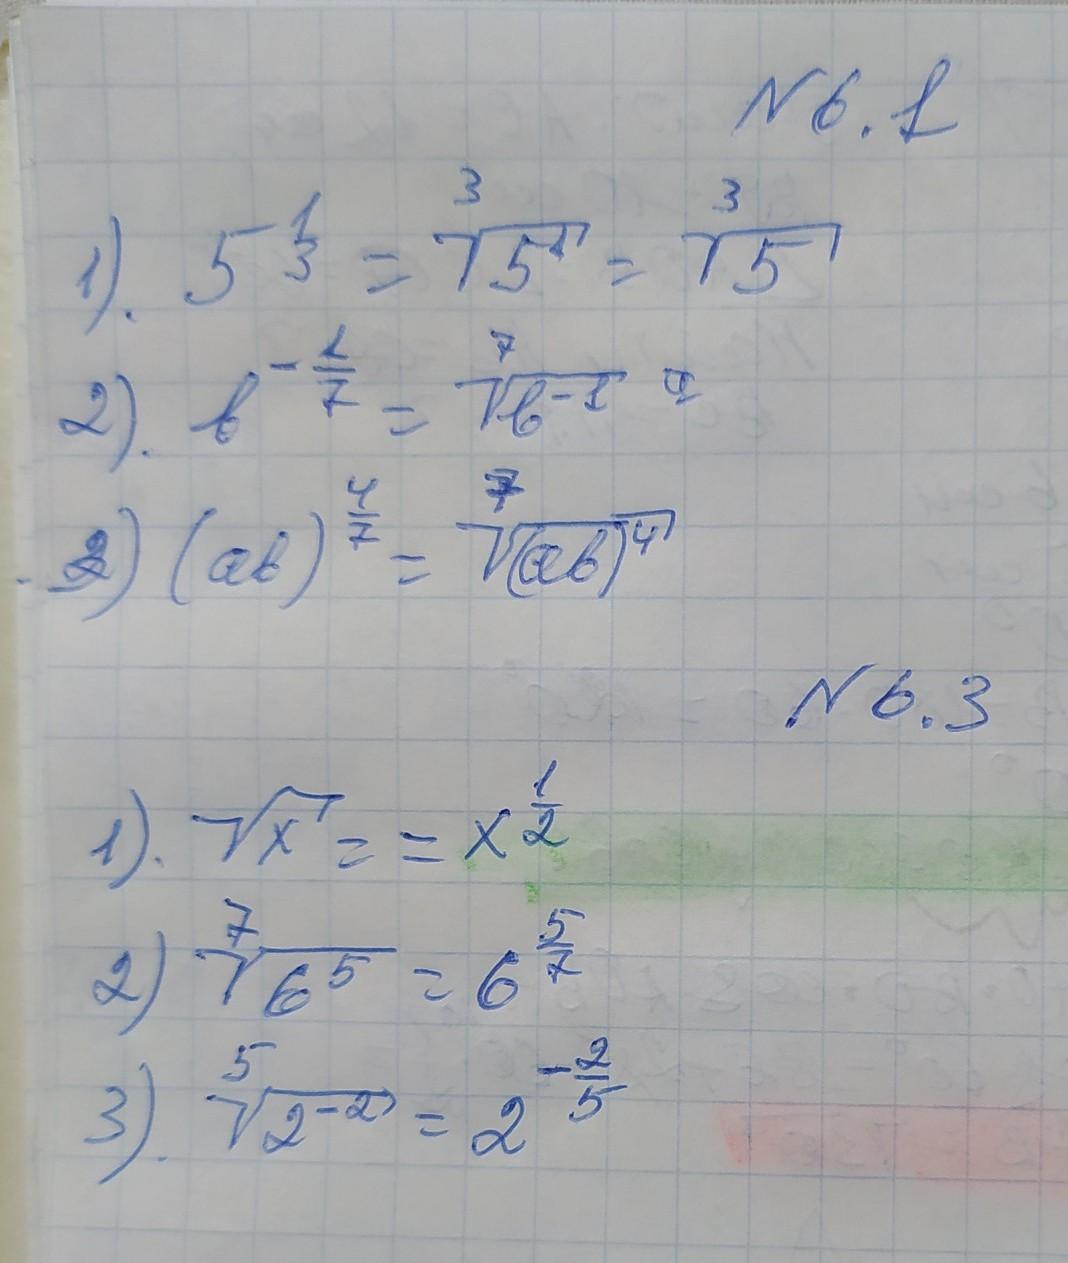 N 6.1
1). 5^(1/3) = ³√5¹ = ³√5
2). b^(-1/7) = ⁷√b⁻¹
3) (ab)^(4/7) = ⁷√(ab)⁴
N 6.3
1). √x = = x^(1/2)
2) ⁷√6⁵ = 6^(5/7)
3). ⁵√2⁻² = 2^(-2/5)